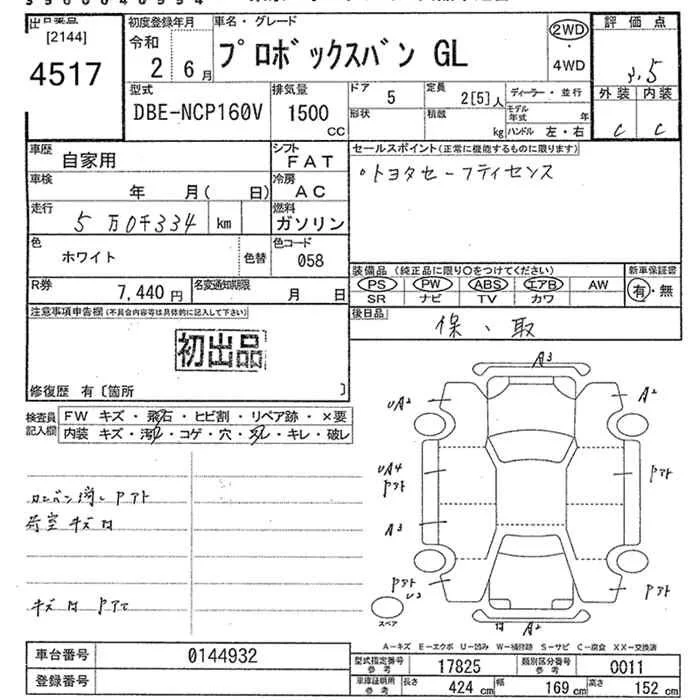 出品番号
[2144]
4517
初度登録年月
令和
2 6月
車名・グレード
プロボックスバン GL
2WD
・
4WD
評価点
3.5
外装 内装
C C
型式
DBE-NCP160V
排気量
1500
CC
ドア
5
定員
2[5]人
ディーラー・並行
形状
積載
kg
モデル年式 年
ハンドル 左・右
車歴
自家用
シフト
FAT
車検
年 月( 日)
冷房
AC
走行
5万0千334 km
燃料
ガソリン
色
ホワイト
色替
色コード
058
R券
7,440円
名変通知期限
月 日
セールスポイント(正常に機能するものに限ります)
・トヨタセーフティセンス
装備品(純正品に限り○をつけてください)
PS PW ABS エアB AW
SR ナビ TV カワ
新車保証書
有・無
後日品
保、取
注意事項申告欄(不具合内容等は具体的に記入して下さい)
初出品
修復歴 有〔箇所 〕
検査員
記入欄
FW キズ・飛石・ヒビ割・リペア跡・×要
内装 キズ・汚レ・コゲ・穴・スレ・キレ・破レ
カンバン消しPアト
荷室キズ凹
キズ凹Pアて
A3
UA2
A2
UA4
Pアト
Pアト
A3
Pアト
U2
Pアト
A2
スペア
A-キズ E-エクボ U-凹み W-補修跡 S-サビ C-腐食 XX-交換済
車台番号
0144932
登録番号
型式指定番号
参考
17825
類別区分番号
参考
0011
車庫証明用
参考
長さ 424 cm 幅 169 cm 高さ 152 cm